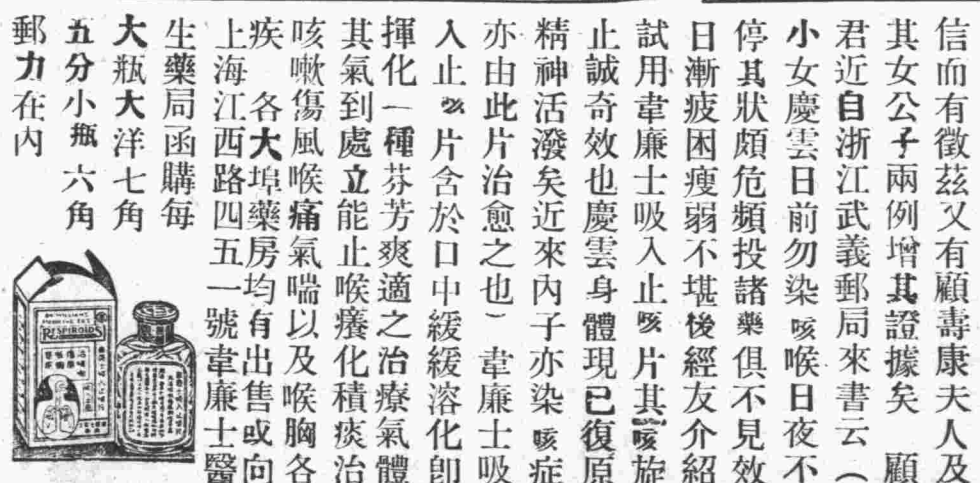 信而有徵茲又有顧壽康夫人及
其女公子兩例增其證據矣　顧
君近自浙江武義郵局來書云（
小女慶雲日前勿染咳喉日夜不
停其狀頗危頻投諸藥俱不見效
日漸疲困瘦弱不堪後經友介紹
試用韋廉士吸入止咳片其咳旋
止誠奇效也慶雲身體現已復原
精神活潑矣近來內子亦染咳症
亦由此片治愈之也）韋廉士吸
入止咳片含於口中緩緩溶化卽
揮化一種芬芳爽適之治療氣體
其氣到處立能止喉癢化積痰治
咳嗽傷風喉痛氣喘以及喉胸各
疾　各大埠藥房均有出售或向
上海江西路四五一號韋廉士醫
生藥局函購每
大瓶大洋七角
五分小瓶六角
郵力在內
DR. WILLIAMS
RESPIROIDS